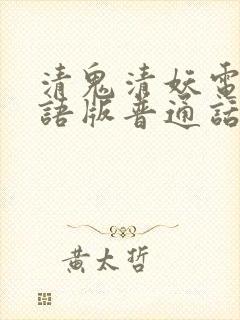 清鬼清妖電
語版普通話
黃太哲